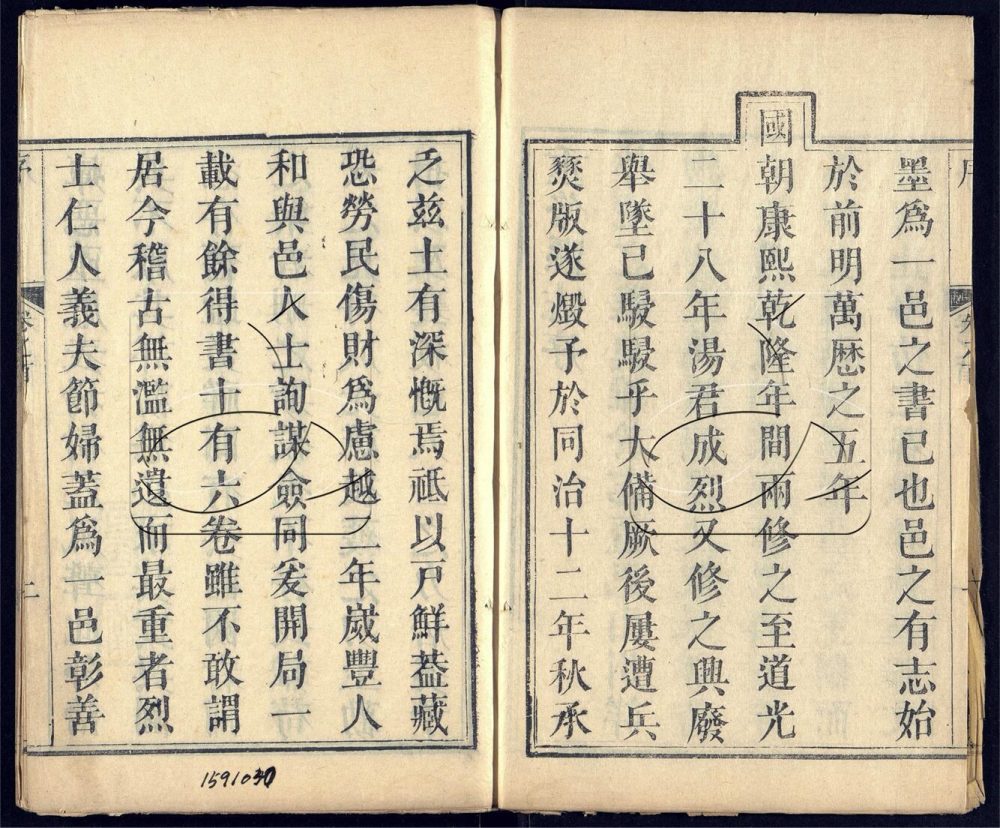 墨爲一邑之書已也邑之有志始
於前明萬厯之五年
國朝康熙乾隆年間兩修之至道光
二十八年湯君成烈又修之興廢
舉墜已駸駸乎大備厥後屢遭兵
燹版遂燬予於同治十二年秋承
乏茲土有深慨焉祗以戸鮮葢藏
恐勞民傷財爲慮越二年歲豐人
和與邑人士詢謀僉同爰開局一
載有餘得書十有六卷雖不敢謂
居今稽古無濫無遺而最重者烈
士仁人義夫節婦蓋爲一邑彰善
序
二
1591030